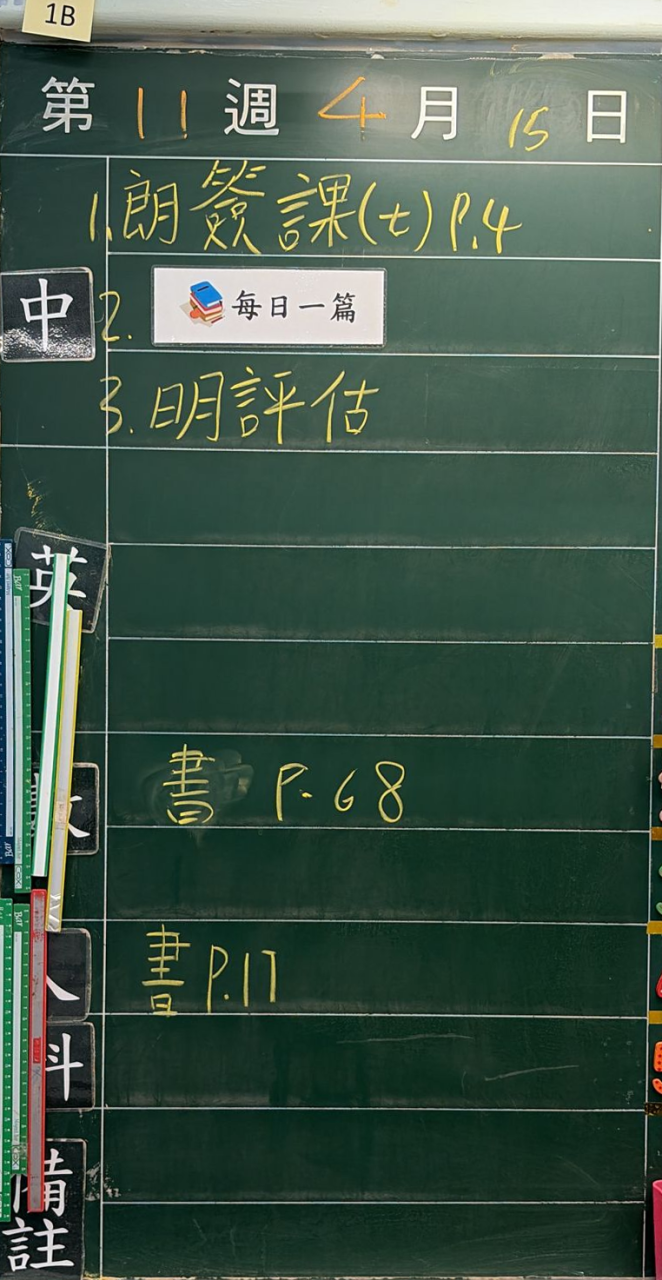 1B
第 11 週 4 月 15 日
1. 朗簽課(七) P.4
中
2. 每日一篇
3. 明評估
英
書 P.68
書 P.17
人
科
備註